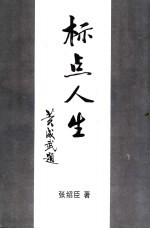 标点人生
黄成武题
张绍臣 著